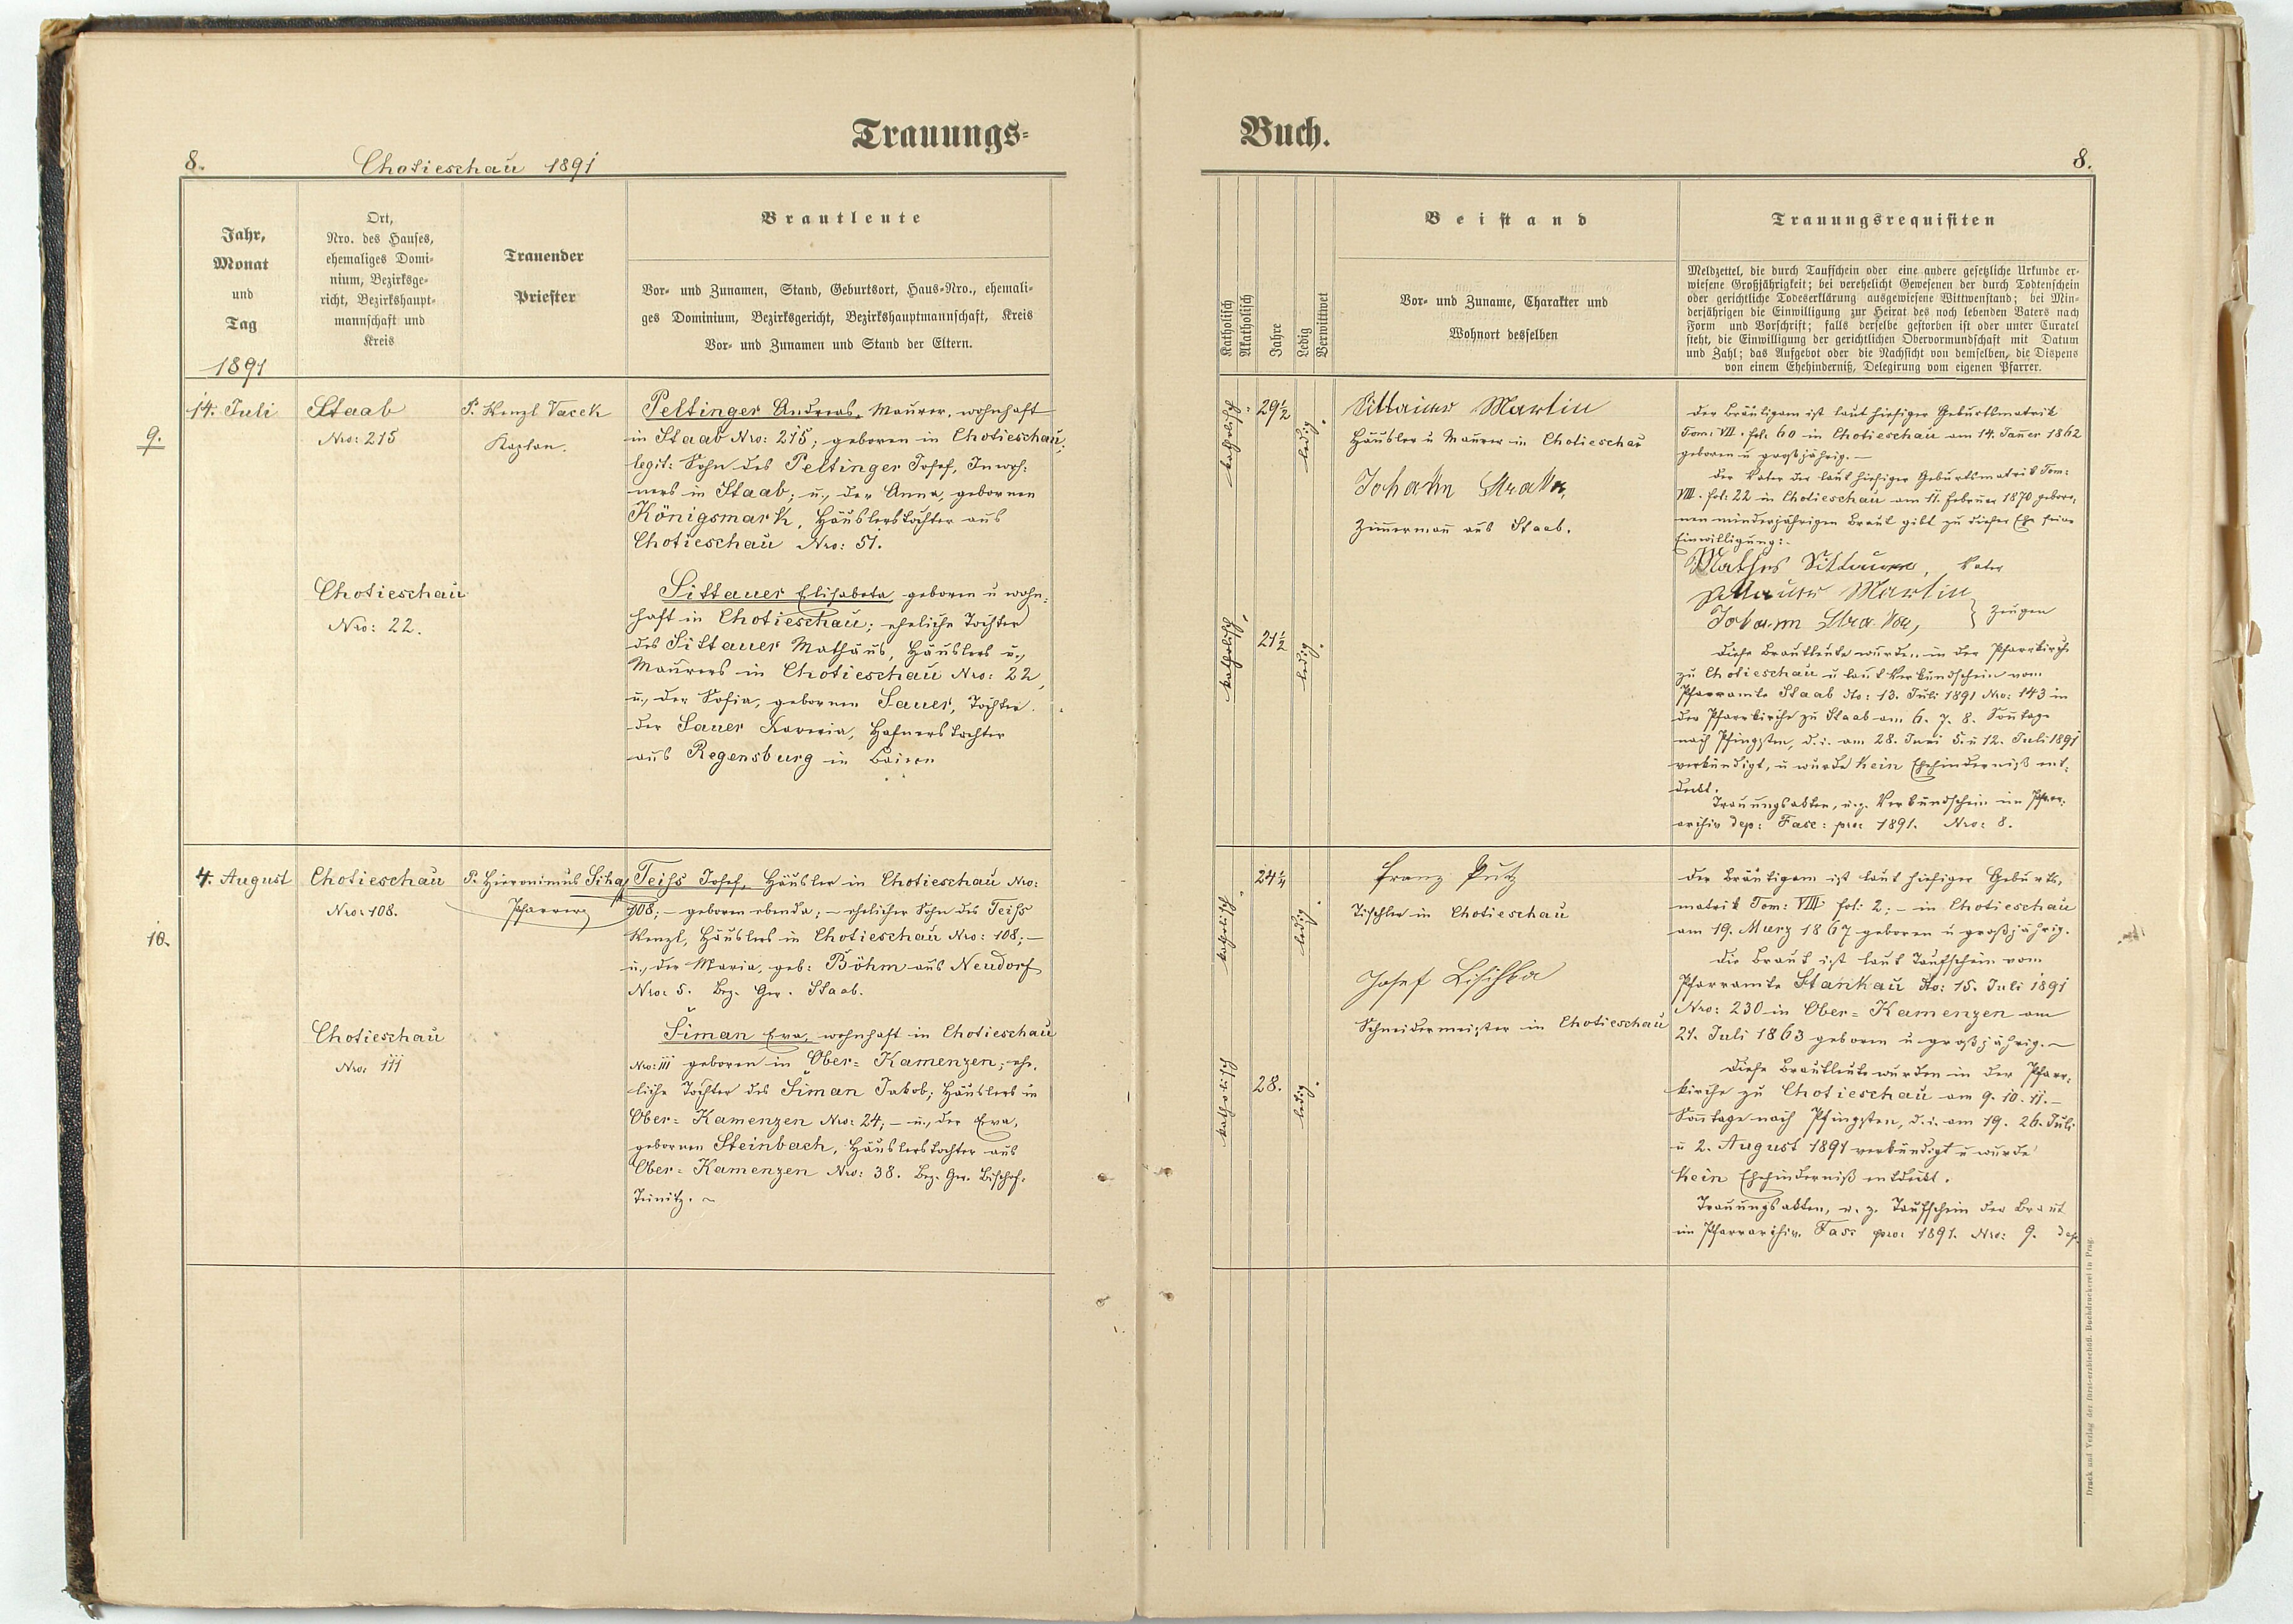 Trauungs-
8. Chotieschau 1891
Jahr,
Monat
und
Tag
1891
Ort,
Nro. des Hauses,
ehemaliges Domi-
nium, Bezirksge-
richt, Bezirkshaupt-
mannschaft und
Kreis
Trauender
Priester
Brautleute
Vor- und Zunamen, Stand, Geburtsort, Haus-Nro., ehemali-
ges Dominium, Bezirksgericht, Bezirkshauptmannschaft, Kreis
Vor- und Zunamen und Stand der Eltern.
9.
14. Juli
Staab
Nro: 215
P. Wenzl Vacek
Kaplan.
Peltinger Andreas, Maurer, wohnhaft
in Staab Nro: 215; geboren in Chotieschau;
legit: Sohn des Peltinger Josef, Inwoh:
ners in Staab; u., der Anna, gebornen
Königsmark, Häuslerstochter aus
Chotieschau Nro: 51.
Chotieschau
Nro: 22.
Sittauer Elisabeta geboren u wohn:
haft in Chotieschau; eheliche Tochter
des Sittauer Mathäus, Häuslers u.,
Maurers in Chotieschau Nro: 22,
u., der Sofia, gebornen Sauer, Tochter
der Sauer Xaveria, Hafnerstochter
aus Regensburg in Baiern
10.
4. August
Chotieschau
Nro: 108.
P. Hieronimus
Pfarrer
Teiss Josef, Häusler in Chotieschau Nro:
108; – geboren ebenda; – ehelicher Sohn des Teiss
Wenzl, Häuslers in Chotieschau Nro: 108; –
u., der Maria, geb: Böhm aus Neudorf
Nro: 5. Bez. Ger. Staab.
Chotieschau
Nro: 111
Šiman Eva, wohnhaft in Chotieschau
Nro: 111 geboren in Ober= Kamenzen; ehe,
liche Tochter des Šiman Jakob, Häuslers in
Ober= Kamenzen Nro: 24; – u., der Eva,
gebornen Steinbach, Häuslerstochter aus
Ober= Kamenzen Nro: 38. Bez. Ger. Bischof-
Teinitz. ~
Buch.
8.
Katholisch
Akatholisch
Jahre
Ledig
Verwittwet
Beistand
Vor- und Zuname, Charakter und
Wohnort desselben
Trauungsrequisiten
Meldzettel, die durch Taufschein oder eine andere gesetzliche Urkunde er-
wiesene Großjährigkeit; bei verehelicht Gewesenen der durch Todtenschein
oder gerichtliche Todeserklärung ausgewiesene Wittwenstand; bei Min-
derjährigen die Einwilligung zur Heirat des noch lebenden Vaters nach
Form und Vorschrift; falls derselbe gestorben ist oder unter Curatel
steht, die Einwilligung der gerichtlichen Obervormundschaft mit Datum
und Zahl; das Aufgebot oder die Nachsicht von demselben, die Dispens
von einem Ehehinderniß, Delegirung vom eigenen Pfarrer.
katholisch
29½
ledig.
Sittauer Martin
Häusler u Maurer in Chotieschau
Johann
Zimmerman aus Staab.
katholisch,
21½
ledig.
Der Bräutigam ist laut hiesiger Geburtsmatrik
Tom: VII. fol: 60 in Chotieschau am 14. Janner 1862
geboren u großjährig. –
Der Vater der laut hiesiger Geburtsmatrik Tom:
VIII. fol: 22 in Chotieschau am 11. Februar 1870 gebore,
nen minderjährigen Braut gibt zu dieser Ehe seine
Einwilligung:
Sittauer, Vater
Sittauer Martin
Johann
} Zeugen
Diese Brautleute wurden in der Pfarrkirche
zu Chotieschau u laut Verkündschein vom
Pfarramte Staab dto: 13. Juli 1891 Nro: 143 in
der Pfarrkirche zu Staab am 6. 7. 8. Sontage
nach Pfingsten, d. i. am 28. Juni 5. u 12. Juli 1891
verkündigt, u wurde kein Ehehinderniß ent:
deckt.
Trauungsakten, u. z. Verkündschein im Pfarr:
archiv dep: Fasc: pro: 1891. Nro: 8.
katholisch.
24¼
ledig.
Franz Putz
Tischler in Chotieschau
Josef Lischka
Schneidermeister in Chotieschau
katholisch
28.
ledig.
Der Bräutigam ist laut hiesiger Geburts,
matrik Tom: VIII fol: 2; – in Chotieschau
am 19. Marz 1867 geboren u großjährig.
Die Braut ist laut Taufschein vom
Pfarramte Stankau dto: 15. Juli 1891
Nro: 230 in Ober= Kamenzen am
21. Juli 1863 geboren u großjährig. ~
Diese Brautleute wurden in der Pfarr,
kirche zu Chotieschau am 9. 10. 11. –
Sontage nach Pfingsten, d. i. am 19. 26. Juli
u 2. August 1891 verkündigt u wurde
kein Ehehinderniß entdeckt.
Trauungsakten, u. z. Taufschein der Braut
im Pfarrarchiv. Fas: pro: 1891. Nro: 9. dep.
Druck und Verlag der fürst-erzbischöfl. Buchdruckerei in Prag.